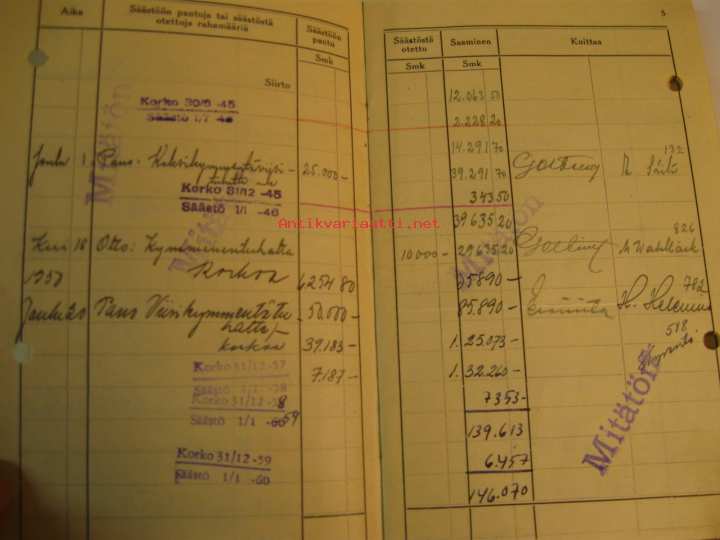 Aika
Säästöön pantuja tai säästöstä otettuja rahamääriä
Säästöön pantu
Smk
Siirto
Korko 30/6 -45
Säästö 1/7 -45
Mitätön
Joulu 1. Pano. Kaksikymmentäviisi- 25.000-
Korko 31/12 -45
Säästö 1/1 -46
Kesä 18 Otto: Kymmenentuhatta
Mitätön
1957 korkoa 6254 80
Jouluk 20 Pano Viisikymmentätu 50.000-
hatta
korkoa 39.183-
7.187-
Korko 31/12 -57
Säästö 1/1 -58
Korko 31/12 -58
Säästö 1/1 -59
Korko 31/12 -59
Säästö 1/1 -60
5
Säästöstä otettu
Saaminen
Kuittaa
Smk
Smk
12.063 50
2.228 20
14.291 70
192
39.291 70
343 50
39 635 20
826
10000- 29.635 20
M Wahlbäck
35890-
782
85.890-
H. Helenius
518
1.25.073-
1.32.260-
7353-
139.613
6.457
146.070
Mitätön
Mitätön
Antikvariaatti.net